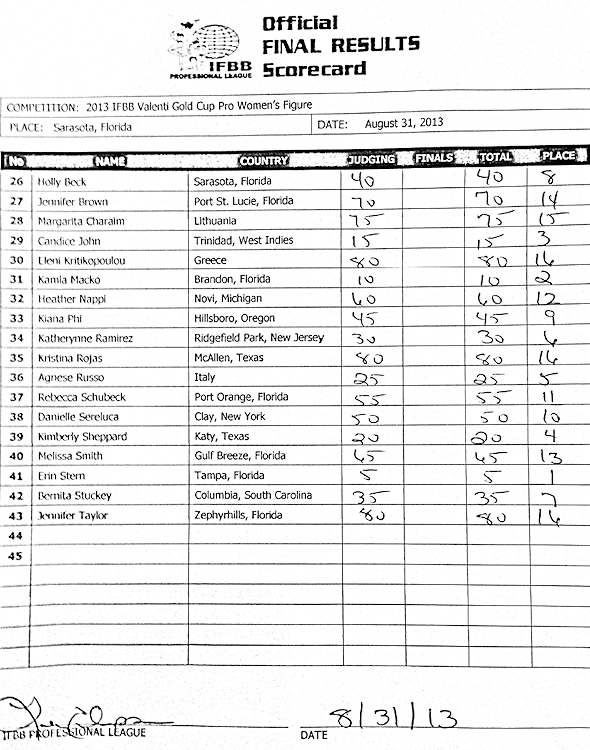 Official
FINAL RESULTS
Scorecard
IFBB
PROFESSIONAL LEAGUE
COMPETITION: 2013 IFBB Valenti Gold Cup Pro Women's Figure
PLACE: Sarasota, Florida DATE: August 31, 2013
No NAME COUNTRY JUDGING FINALS TOTAL PLACE
26 Holly Beck Sarasota, Florida 40 40 8
27 Jennifer Brown Port St. Lucie, Florida 70 70 14
28 Margarita Charaim Lithuania 75 75 15
29 Candice John Trinidad, West Indies 15 15 3
30 Eleni Kritikopoulou Greece 80 80 16
31 Kamla Macko Brandon, Florida 10 10 2
32 Heather Nappi Novi, Michigan 60 60 12
33 Kiana Phi Hillsboro, Oregon 45 45 9
34 Katherynne Ramirez Ridgefield Park, New Jersey 30 30 6
35 Kristina Rojas McAllen, Texas 80 80 16
36 Agnese Russo Italy 25 25 5
37 Rebecca Schubeck Port Orange, Florida 55 55 11
38 Danielle Sereluca Clay, New York 50 50 10
39 Kimberly Sheppard Katy, Texas 20 20 4
40 Melissa Smith Gulf Breeze, Florida 65 65 13
41 Erin Stern Tampa, Florida 5 5 1
42 Bernita Stuckey Columbia, South Carolina 35 35 7
43 Jennifer Taylor Zephyrhills, Florida 80 80 16
44
45
8/31/13
IFBB PROFESSIONAL LEAGUE DATE